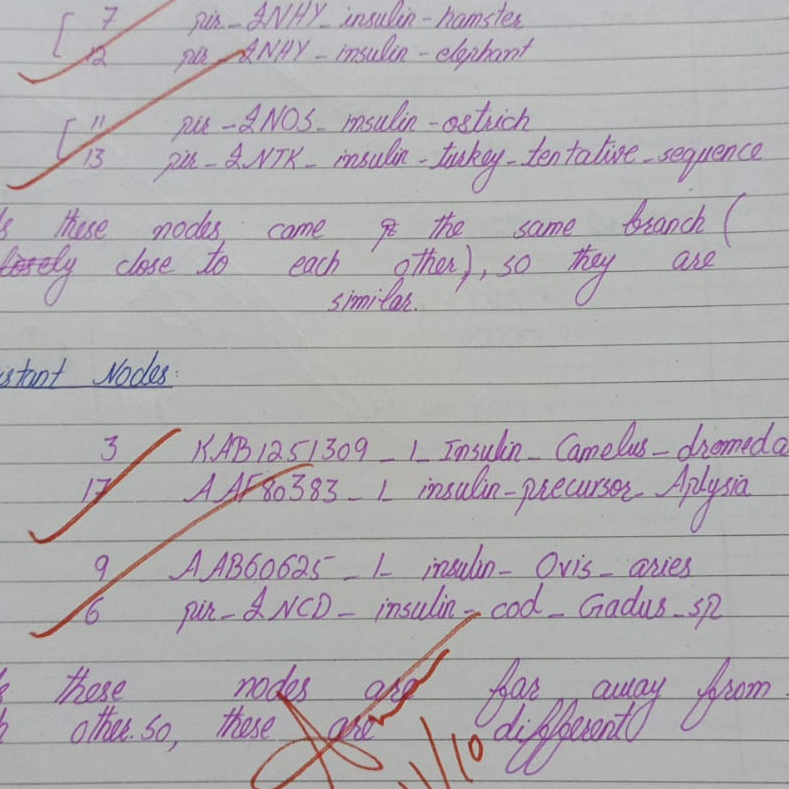 [ 7 pir-INHY-insulin-hamster
12 pir-INHY-insulin-elephant
[ 11 pir-INOS-insulin-ostrich
13 pir-INTK-insulin-turkey-tentative-sequence
these nodes came the same branch (
close to each other), so they are
similar.
Nodes:
3 KAB1251309_1 Insulin-Camelus-dromeda
17 AAF80383_1 insulin-precursor-Aplysia
9 AAB60625_1 insulin-Ovis-aries
6 pir-INCD-insulin-cod-Gadus-sp
these nodes are far away from
other. so, these are different
11/10